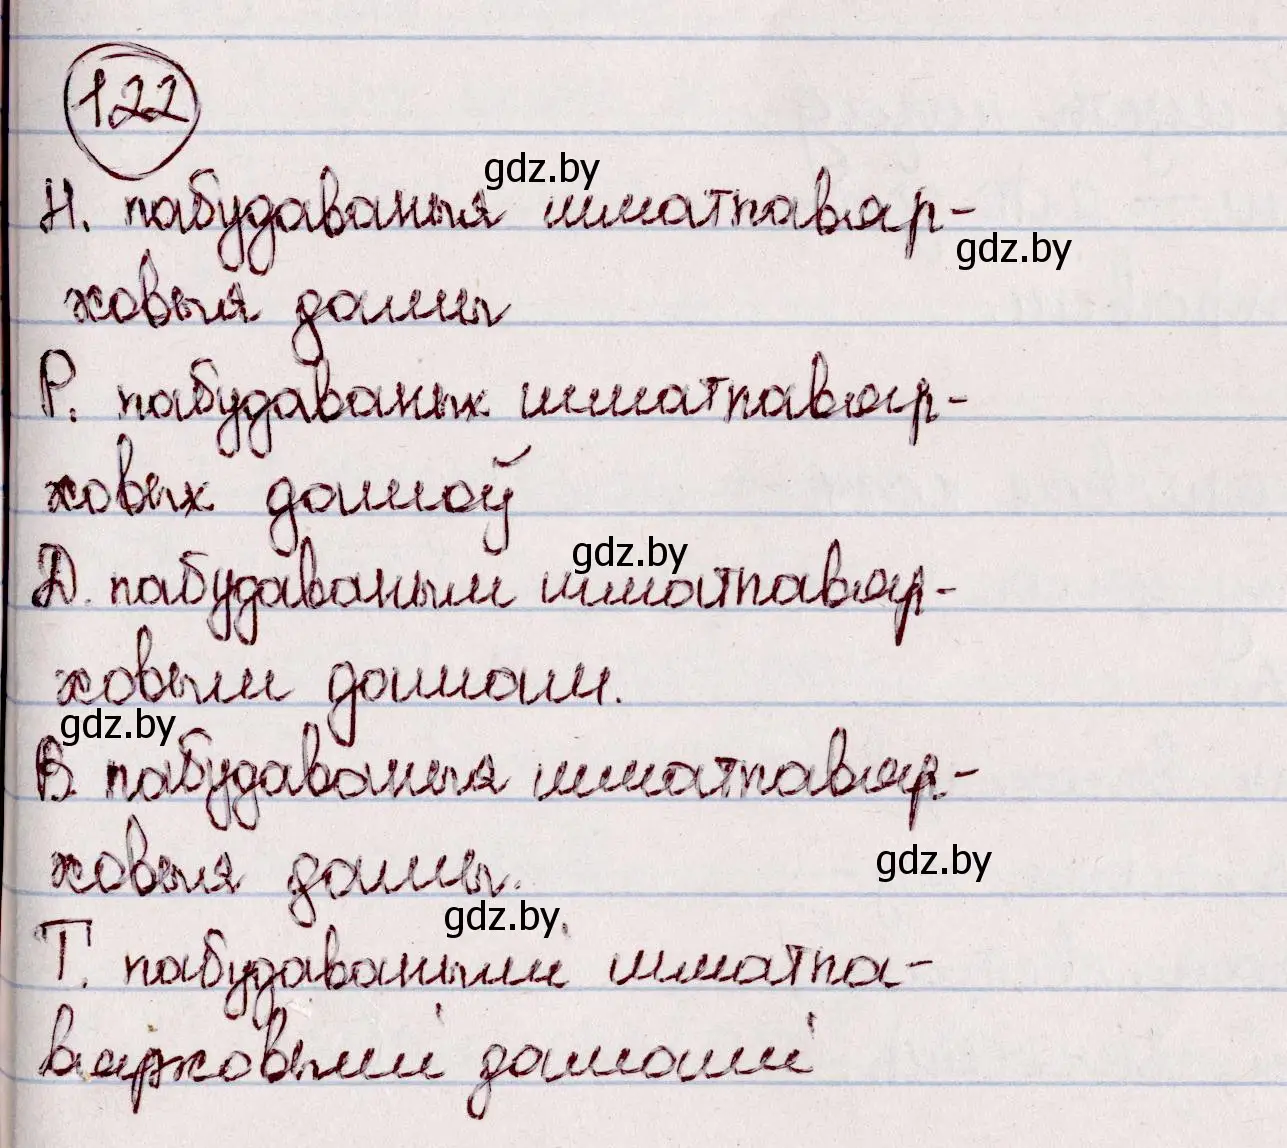 122
gdz.by
Н. пабудаваныя шматпавяр-
gdz.by
ховыя дамы
Р. пабудаваных шматпавяр-
ховых дамоў
gdz.by
Д. пабудаваным шматпавяр-
ховым дамам.
gdz.by
В. пабудаваныя шматпавяр-
ховыя дамы.
gdz.by
gdz.by
Т. пабудаванымі шматпа-
вярховымі дамамі